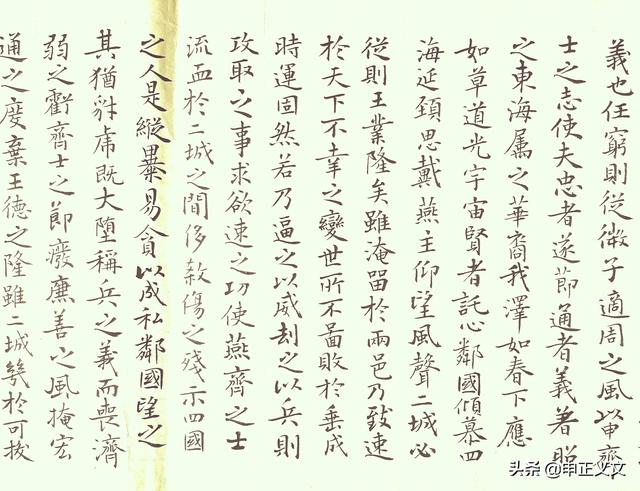 義也任窮則從微子適周之風以申齊
士之志使夫忠者遂節通者義著昭
之東海属之華裔我澤如春下應
如草道光宇宙賢者託心鄰國傾慕四
海延頸思戴燕主仰望風聲二城必
從則王業隆矣雖淹留於兩邑乃致速
於天下不幸之變世所不啚敗於垂成
時運固然若乃逼之以威劫之以兵則
攻取之事求欲速之功使燕齊之士
流血於二城之間侈殺傷之殘示四國
之人是縱暴易貪以成私鄰國望之
其猶豺虎既大墮稱兵之義而喪濟
弱之虧齊士之節廢廉善之風掩宏
通之度棄王德之隆雖二城幾於可拔
头条 @申正义文